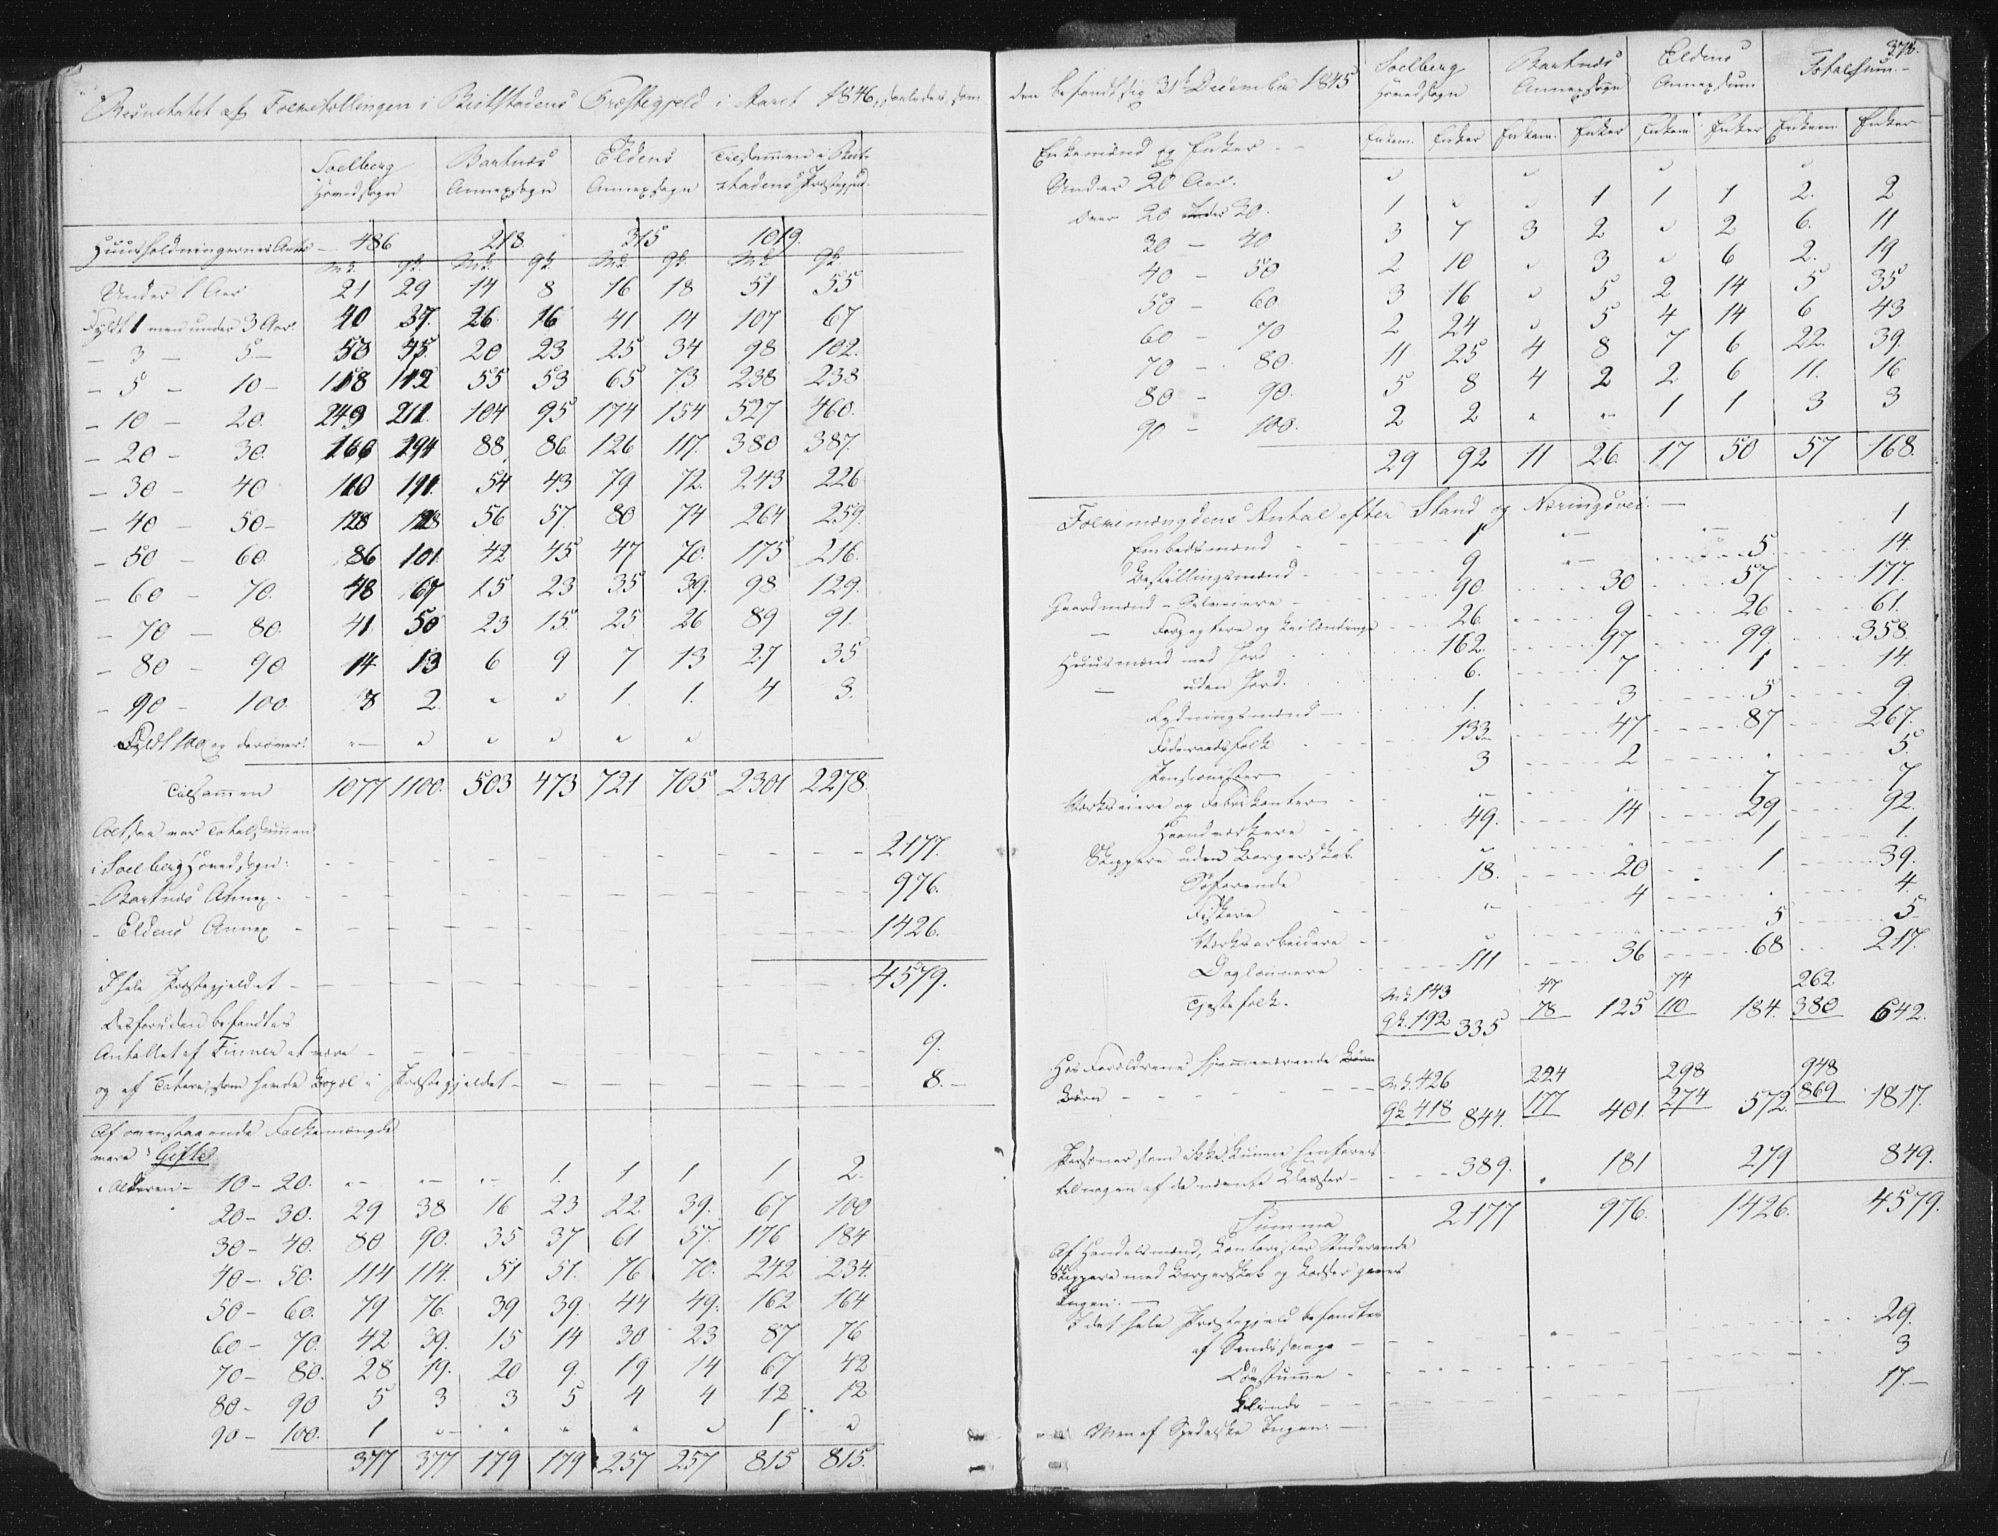 Resultatet af Folketællingen i Beitstadens Præstegjeld i Aaret 1846, saaledes som
Soelberg Hovedsogn Bartnæs Annexsogn Eldens Annexsogn Tilsammen i Beitstadens Præstegjeld
Huusholdningernes Antal 486 218. 315 1019.
Mk. Qk. Mk. Qk. Mk. Qk. Mk. Qk.
Under 1 Aar 21 29 14 8 16 18 51 55
Fyldt 1 men under 3 Aar. 40 37. 26. 16 41 14 107 67
- 3 - 5.- 53 45 20 23 25 34 98 102.
- 5 - 10- 118 112 55 53 65 73 238 238
- 10 - 20. 249 211. 104 95 174 154 527 460.
- 20 - 30. 166 194 88 86 126 117. 380 387.
- 30 - 40 110 111. 54 43 79 72. 243 226
- 40 - 50- 128 128 56 57. 80 74 264 259.
- 50 - 60. 86 101. 42 45 47 70. 175 216.
- 60 - 70. 48 67 15 23 35 39. 98 129.
- 70 - 80. 41 50 23 15. 25 26 89 91.
- 80 - 90. 14 13 6 9 7 13 27 35
- 90 - 100. 3 2. " " 1. 1. 4 3.
Fyldt 100 og derover. " " " " " "
Tilsammen 1077 1100. 503 473 721 705 2301 2278.
Altsaa var Totalsummen
i Soelberg Hovedsogn: 2177.
- Bartnæs Annex - 976.
- Eldens Annex - 1426.
I hele Præstegjeldet - 4579.
Desforuden befandtes
Antallet af Finner at være - 9.
og af Tatere, som havde Bopæl i Præstegjeldet - 8.-
Af ovenstaaende Folkemængde
vare: Gifte
i Alderen - 10-20. " " " 1. 1 1 1 2.
20- 30. 29 38 16 23 22 39. 67 100
30- 40. 80 90. 35 37 61 57. 176 184
40- 50. 114 114. 51 51. 76 70. 242 234.
50- 60. 79 76. 39 39. 44 49. 162 164
60- 70. 42 39. 15 14 30 23 87 76
70- 80. 28 19. 20 9. 19 14 67 42
80- 90 5 3 3 5 4 4 12 12
90- 100. 1 " " " " " 1 "
377 377 179 179 257 257 815 815.
378.
den befandtes 31te December 1845
Soelberg Hovedsogn Bartnæs Annexsogn Eldens Annexsogn Totalsum.-
Enkemænd og Enker - - Enkem. Enker Enkem. Enker Enkem. Enker Enkem. Enker
Under 20 Aar. " " " "
Over 20 under 30. 1 " " 1 1 1 2. 2
30 - 40 3 7 3 2 " 2 6. 11
40 - 50 2 10 " 3 " 6 2. 19
50 - 60 3 16 " 5 2 14 5 35
60 - 70 2 24 " 5 4 14 6 43
70 - 80. 11 25 4 8 7 6 22. 39.
80 - 90. 5 8 4 2 2 6 11. 16
90 - 100. 2 2 " " 1 1 3 3
29 92 11 26. 17 50 57 168.
Folkemængdens Antal efter Stand og Næringsvei: -
Embedsmænd 1 " " 1
Bestillingsmænd - 9 " 5 14.
Gaardmænd - Selveiere - 90. 30 57 177.
- Forpagtere og Leilændinge 26. 9 26 61.
Huusmænd med Jord 162. 97 99 358.
- uden Jord. 6. 7 1 14.
Rydningsmænd - 1. 3 5 9.
Føderaadsfolk 133 47 87 267.
Pensionister 3 2 " 5.
Værkseiere og Fabrikanter - " " 7 7
Haandværkere 49. 14 29 92.
Skippere uden Borgerskab " " 1 1.
Søfarende 18. 20 1 39.
Fiskere " 4 " 4.
Værksarbeidere - " 5 5
Dagleiere 111 36 68 217.
Tjenestefolk. Mk. 143 47 74 262
Qk. 192 335 78 125 110 184. 380 642.
Hos Forældrene hjemmeværende Børn
Børn - Mk. 426 224 298 948
Qk. 418 844. 177 401. 274 572. 869 1817.
Personer, som ikke kunne henføres
til nogen af de nævnte Klasser - 389. 181 279 849.
Summa 2177 976. 1426. 4579.
Af Handelsmænd, Kontorister Studerende
Skippere med Borgerskab og Lodser gaves
Ingen. -
I det hele Præstegjeld befandtes
af Sindssvage - 29.
Døvstumme - 3
Blinde - 17.-
- Men af Spedalske Ingen. -